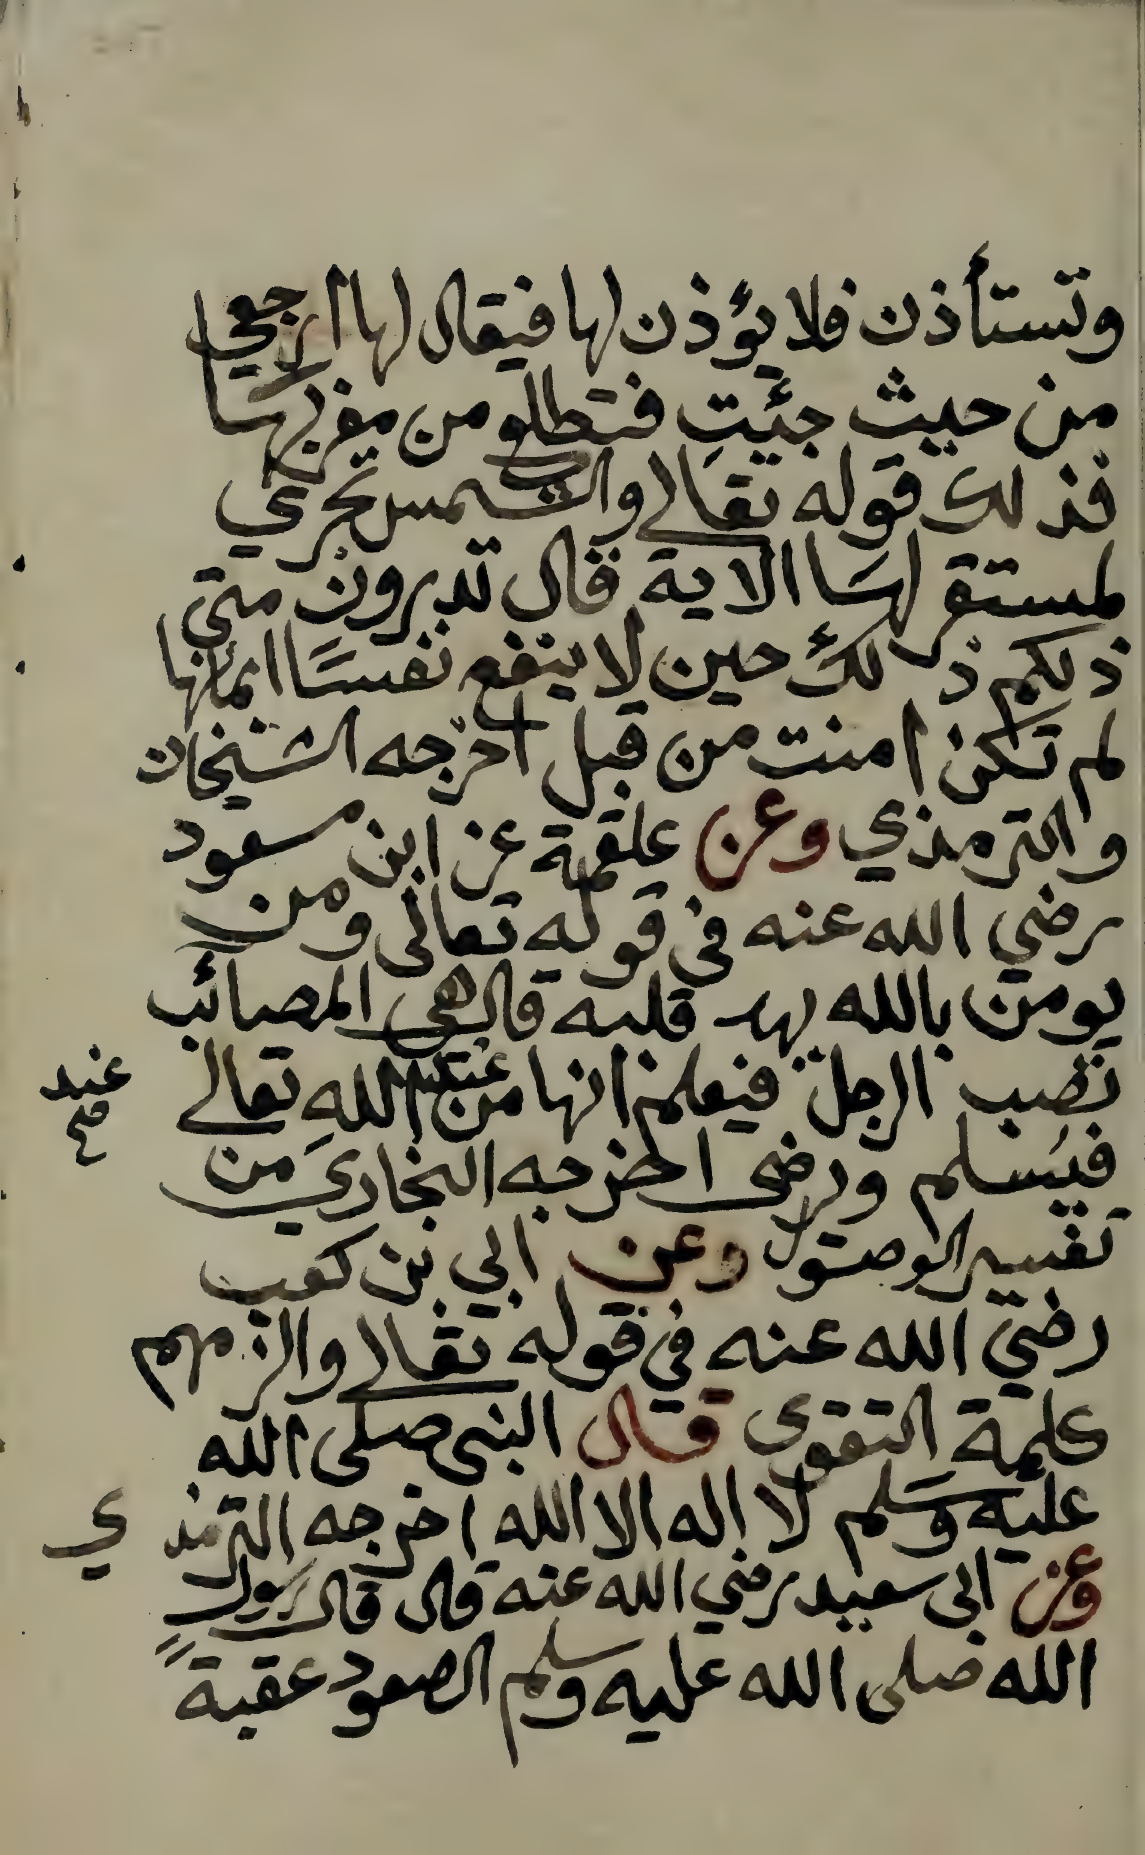 وتستأذن فلا يؤذن لها فيقال لها ارجعي
من حيث جئتِ فتطلع من مغربها
فذلك قوله تعالى والشمس تجري
لمستقر لها الاية قال تدرون متى
ذلكم ذلك حين لا ينفع نفسا ايمانها
لم تكن امنت من قبل اخرجه الشيخان
والترمذي وعن علقمة عن ابن مسعود
رضي الله عنه في قوله تعالى ومن
يومن بالله يهد قلبه قال هي المصائب
تصيب الرجل فيعلم انها من عند الله تعالى
عند صح
فيسلم ويرضى اخرجه البخاري من
تفسير الوصول وعن ابي بن كعب
رضي الله عنه في قوله تعالى والزمهم
كلمة التقوى قال النبي صلى الله
عليه وسلم لا اله الا الله اخرجه الترمذي
وعن ابى سعيد رضي الله عنه قال قال رسول
الله صلى الله عليه وسلم الصعود عقبةً